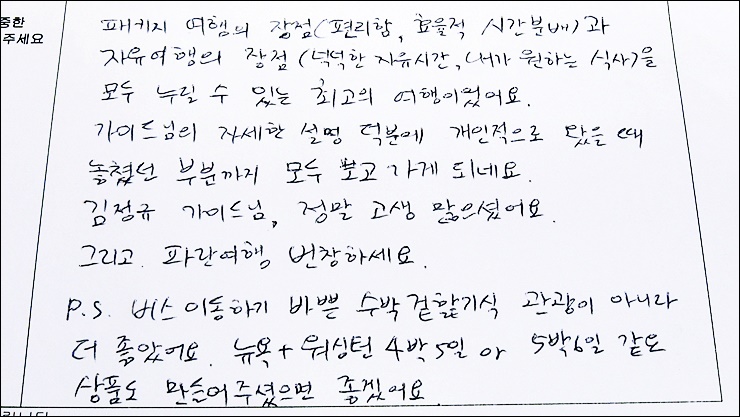 중한
주세요
패키지 여행의 장점(편리함, 효율적 시간분배)과
자유여행의 장점 (넉넉한 자유시간, 내가 원하는 식사)을
모두 누릴 수 있는 최고의 여행이었어요.
가이드님의 자세한 설명 덕분에 개인적으로 왔을 때
놓쳤던 부분까지 모두 보고 가게 되네요.
김정규 가이드님, 정말 고생 많으셨어요.
그리고. 파란여행 번창하세요.
P.S. 버스이동하기 바쁜 수박 겉핥기식 관광이 아니라
더 좋았어요. 뉴욕 + 워싱턴 4박5일 or 5박6일 같은
상품도 만들어주셨으면 좋겠어요.